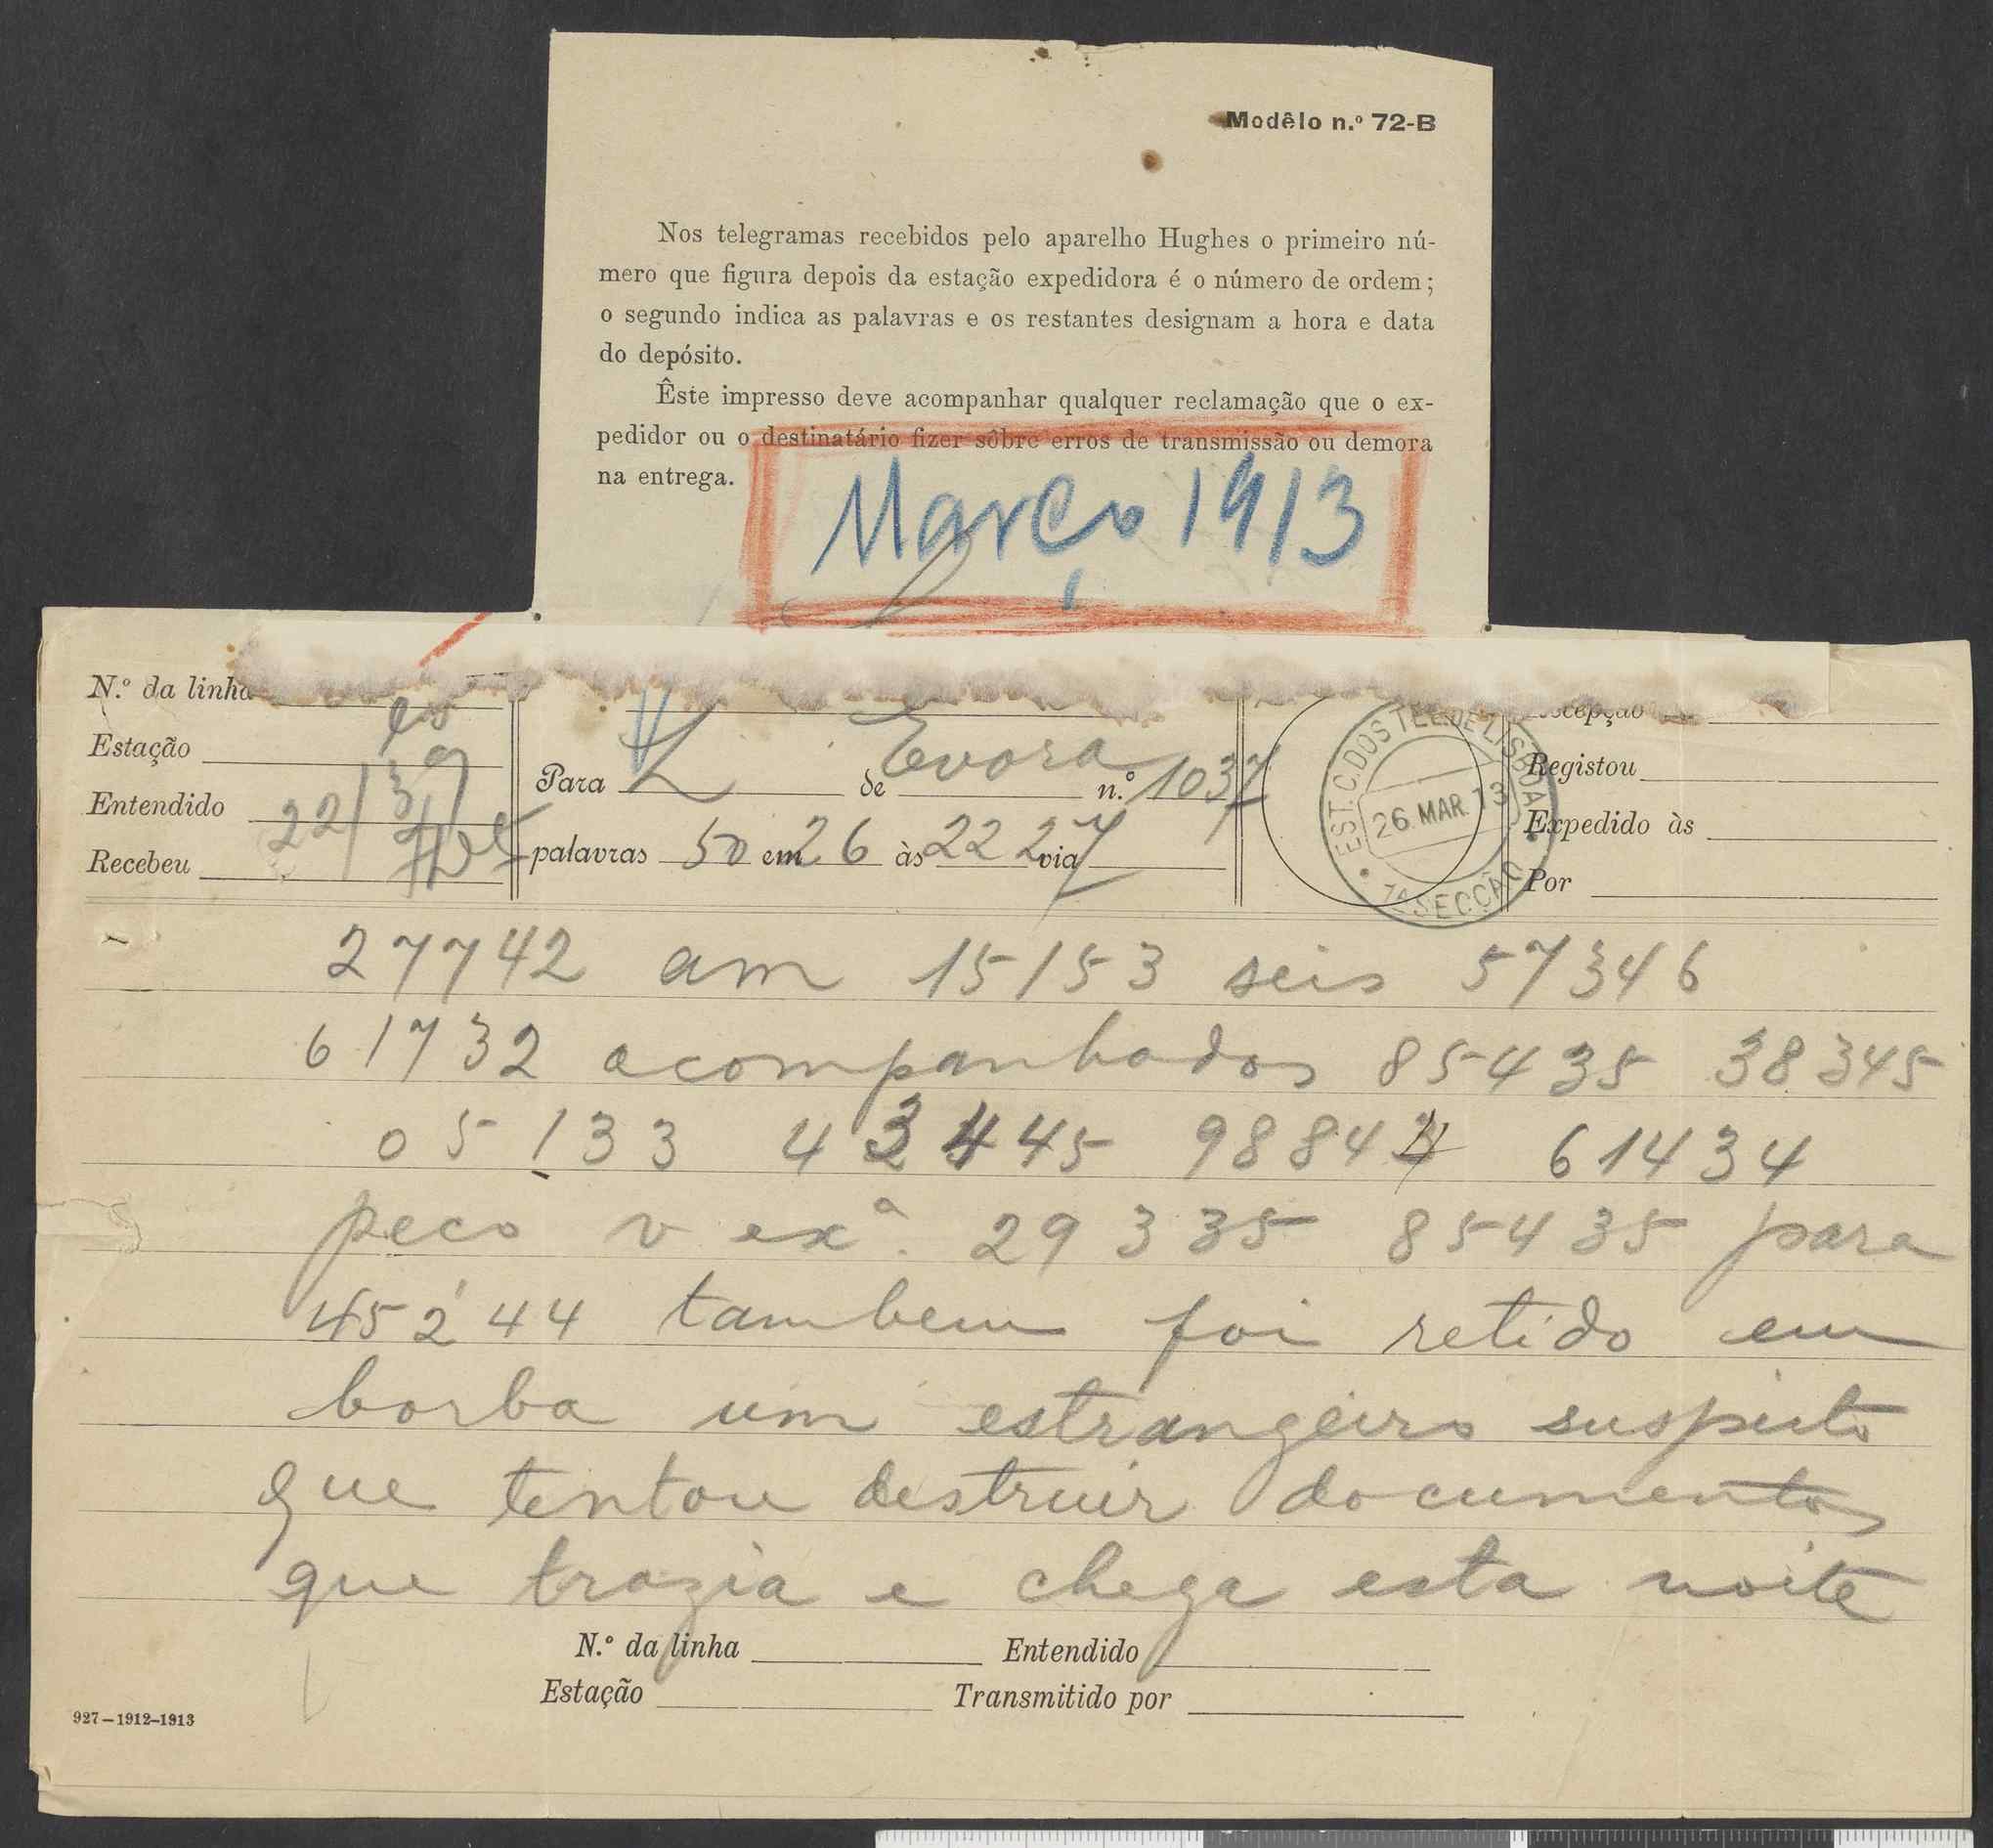 Modêlo n.º 72-B
Nos telegramas recebidos pelo aparelho Hughes o primeiro nú-
mero que figura depois da estação expedidora é o número de ordem;
o segundo indica as palavras e os restantes designam a hora e data
do depósito.
Êste impresso deve acompanhar qualquer reclamação que o ex-
pedidor ou o destinatário fizer sôbre erros de transmissão ou demora
na entrega.
Março 1913
N.º da linha
Estação
Entendido
Recebeu
Para L de Evora n.º 1037
palavras 50 em 26 às 22 27 via
EST. C. DOS TEL. DE LISBOA
26 MAR. 13
1ª SECÇÃO
Registou
Expedido às
Por
27742 am 15153 seis 57346
61732 acompanhados 85435 38345
05133 43445 9884 61434
peco v exª. 29335 85435 para
45244 tambem foi retido em
borba um estrangeiro suspeito
que tentou destruir documentos
que trazia e chega esta noite
N.º da linha Entendido
Estação Transmitido por
927-1912-1913